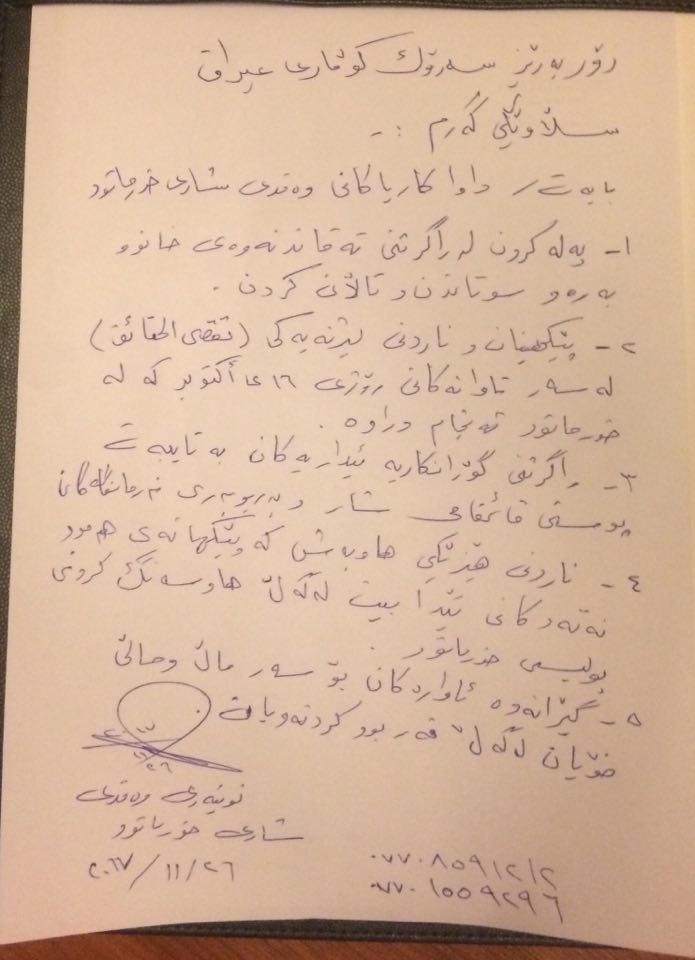 زۆر بەرێز سەرۆك كۆماری عیراق
سڵاوێكی گەرم :-
بابەت / داواكاریاكانی وەفدی شاری خورماتوو
١- پەلە كردن لە راگرتنی تەقاندنەوەی خانوو
بەرە و سوتاندن و تاڵان كردن .
٢- پێكهێنان و ناردنی لیژنەیەكی (تقصي الحقائق)
لەسەر تاوانەكانی رۆژی ١٦ی ئۆكتوبر كە لە
خورماتوو ئەنجام دراوە .
٣- راگرتنی گۆرانكاریە ئیداریەكان بەتایبەت
پوستی قائمقامی شار و بەرێوبەری فەرمانگاكان
٤- ناردنی هێزێكی هاوبەش كە پێكهاتەی هەموو
نەتەوەكانی تێدا بیت لەگەڵ هاوسەنگ كردنی
پولیسی خورماتوو .
٥- گێرانەوە ئاوارەكان بۆ سەر ماڵ وحاڵی
خۆیان لەگەڵ قەرەبوو كردنەویان .
نوێنەری وەفدی
شاری خورماتوو
٢٠١٧/١١/٢٦
٠٧٧٠٨٥٩١٢١٢
٠٧٧٠١٥٥٩٢٩٦